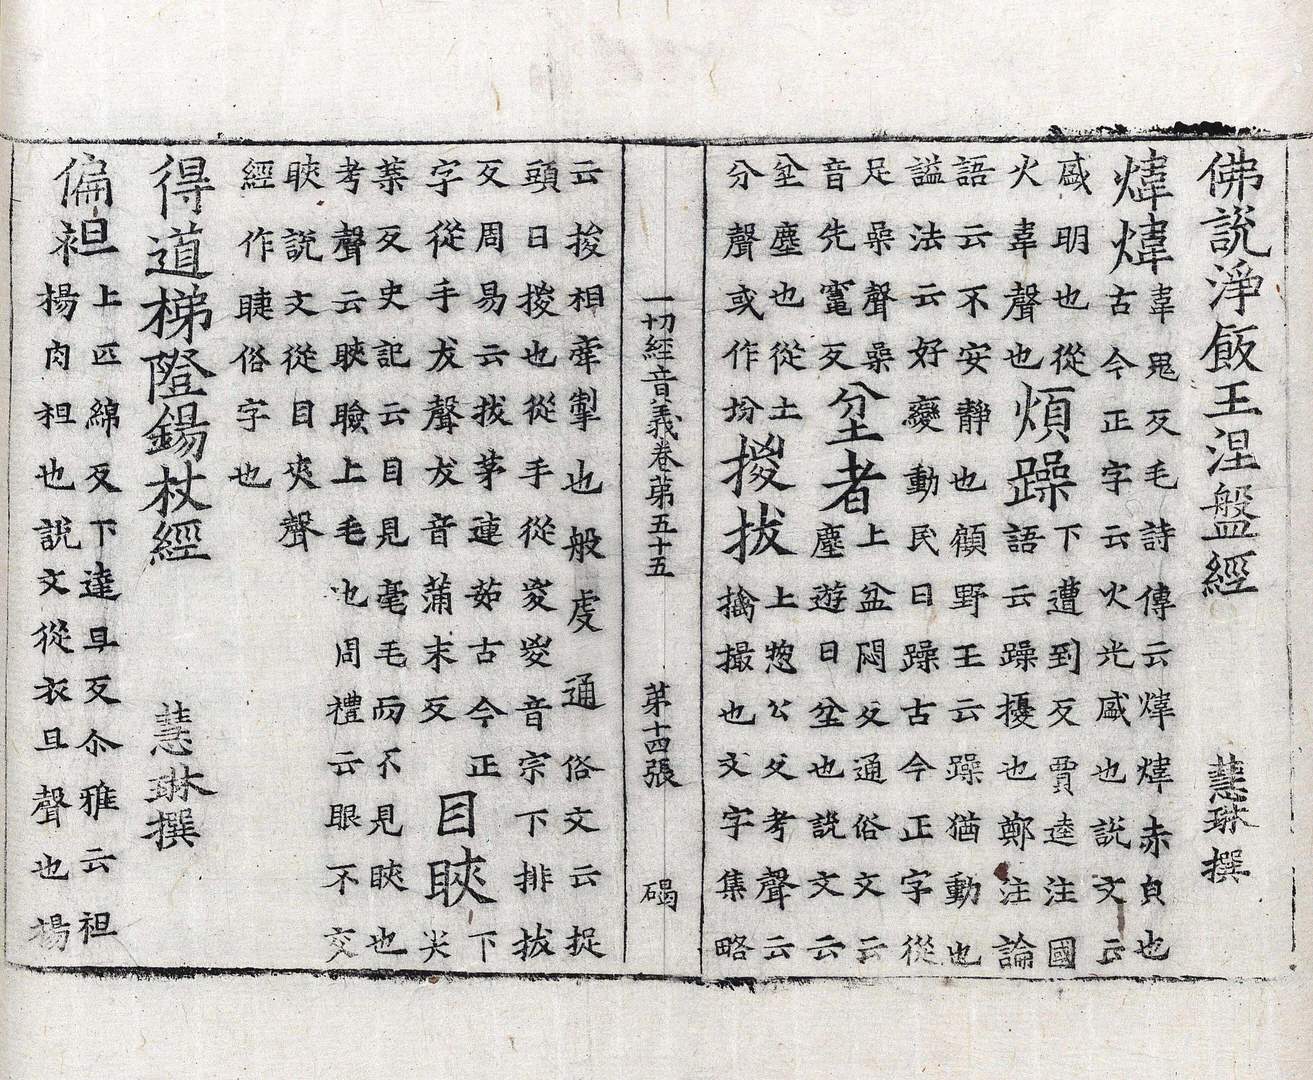 佛說淨飯王涅盤經 慧琳撰
煒煒韋鬼反毛詩傳云煒煒赤皃也
古今正字云火光盛也說文云
盛明也從
火韋聲也
煩躁下遭到反賈逵注國
語云躁擾也鄭注論
語云不安靜也顧野王云躁猶動也
諡法云好變動民曰躁古今正字從
足喿聲喿
音先竈反
坌者上盆悶反通俗文云
塵遊曰坌也說文云
坌塵也從土
分聲或作坋
㨑拔上惣公反考聲云
擒撮也文字集略
一切經音義卷第五十五 第十四張 碣
云捘相牽掣也般虔通俗文云捉
頭曰㨑也從手從㚇㚇音宗下排拔
反周易云拔茅連茹古今正
字從手犮聲犮音蒲末反
目䀹下
尖
葉反史記云目見毫毛而不見䀹也
考聲云䀹瞼上毛也周禮云眼不交
䀹說文從目夾聲
經作睫俗字也
得道梯隥錫杖經 慧琳撰
偏袒上匹綿反下達旦反尒雅云袒
揚肉袒也說文從衣旦聲也揚